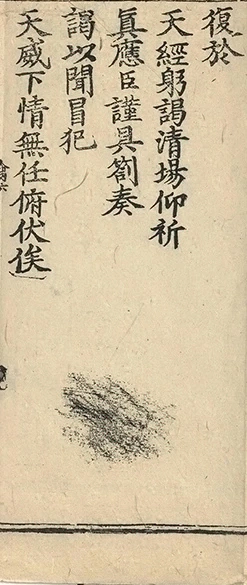 復於
天經躬謁清場仰祈
真應臣謹具劄奏
謁以聞冒犯
天威下情無任俯伏俟